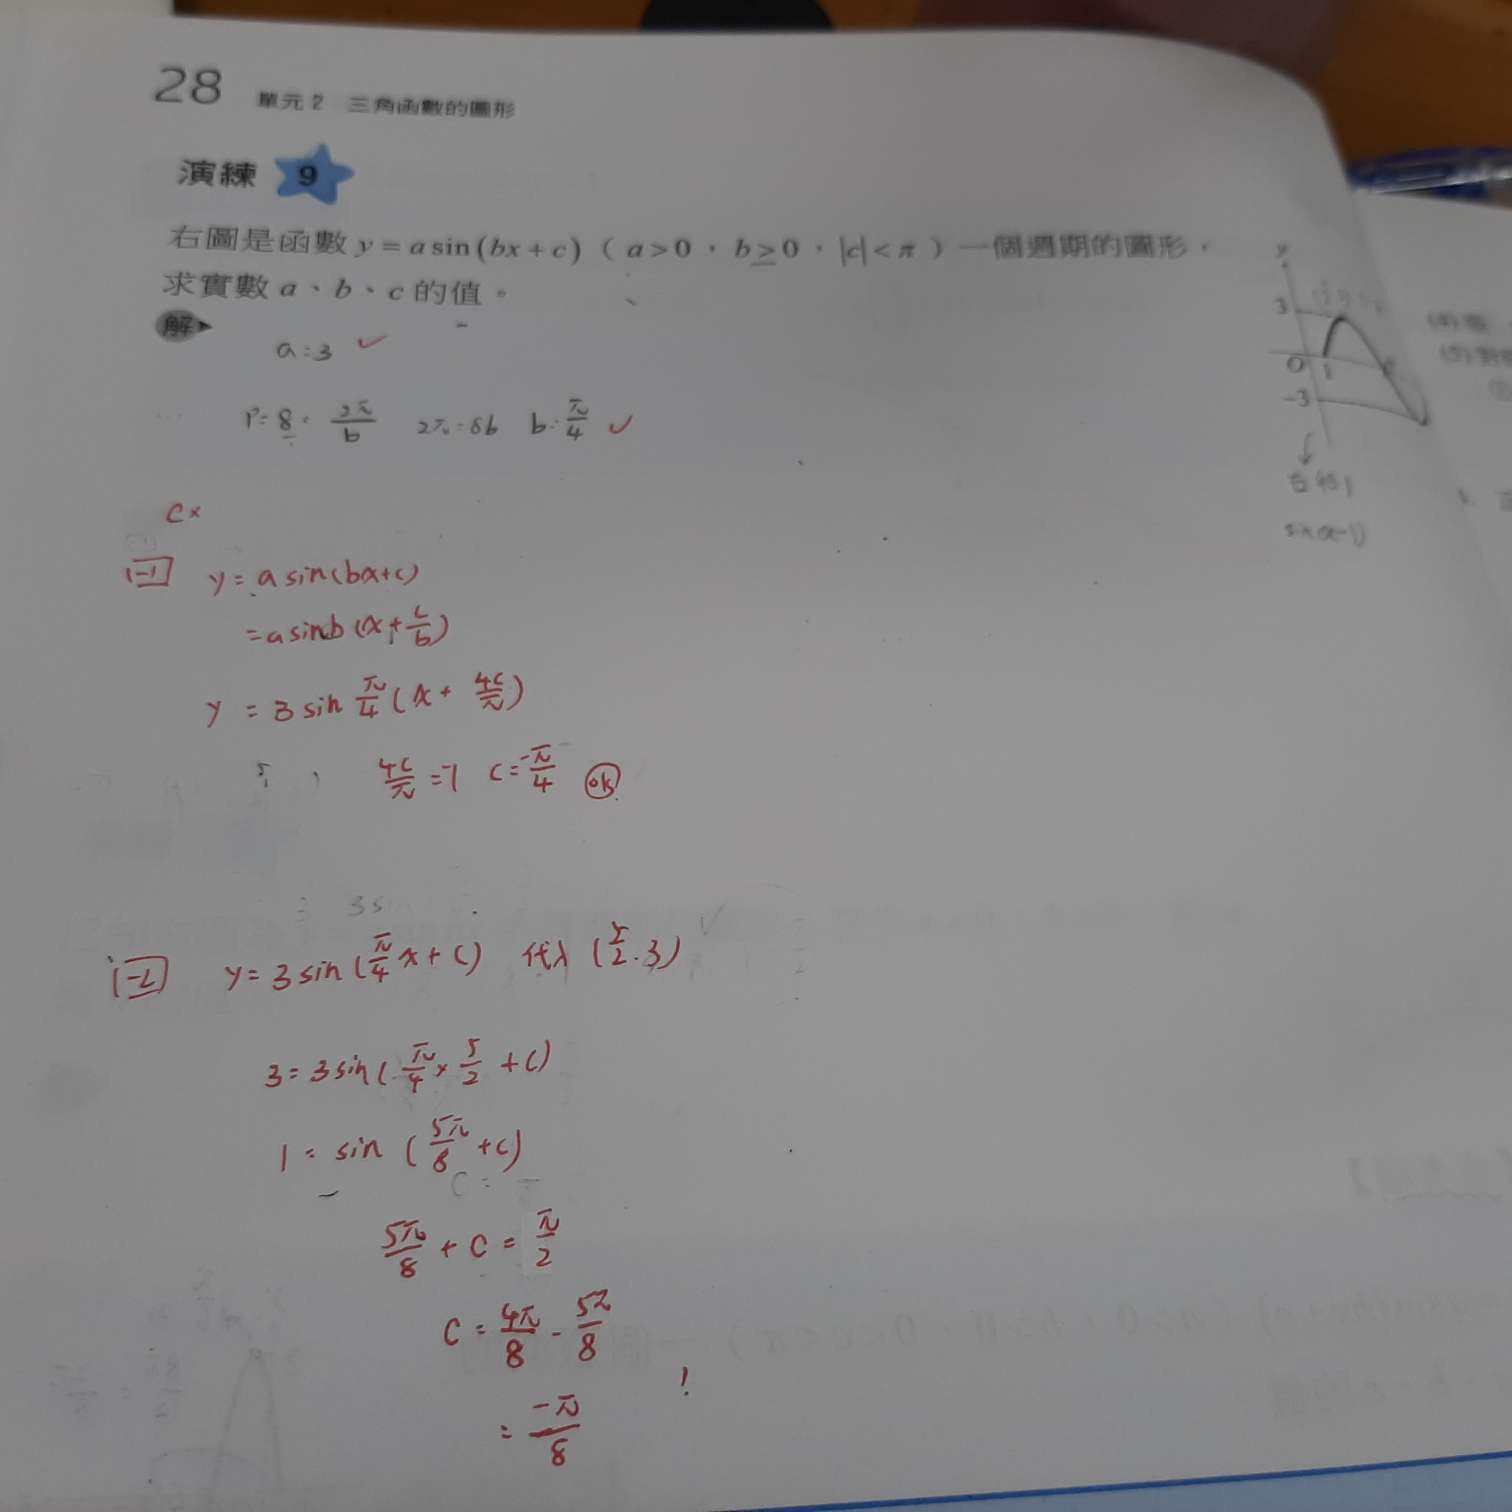 28 單元 2 三角函數的圖形
演練 9
右圖是函數 y = a sin(bx + c) ( a > 0 , b ≥ 0 , |c| < π ) 一個週期的圖形,
求實數 a、b、c 的值。
解
a = 3 ✓
P = 8 = 2π/b 2π = 8b b = π/4 ✓
y
3
O 1
-3
右移1
sin(x-1)
c×
(-1) y = a sin(bx+c)
= a sin b (x + c/b)
y = 3 sin π/4 (x + 4c/π)
4c/π = -1 c = -π/4 ok
(-2) y = 3 sin (π/4 x + c) 代入 (5/2 . 3)
3 = 3 sin ( π/4 × 5/2 + c)
1 = sin ( 5π/8 + c)
5π/8 + c = π/2
c = 4π/8 - 5π/8
= -π/8 !